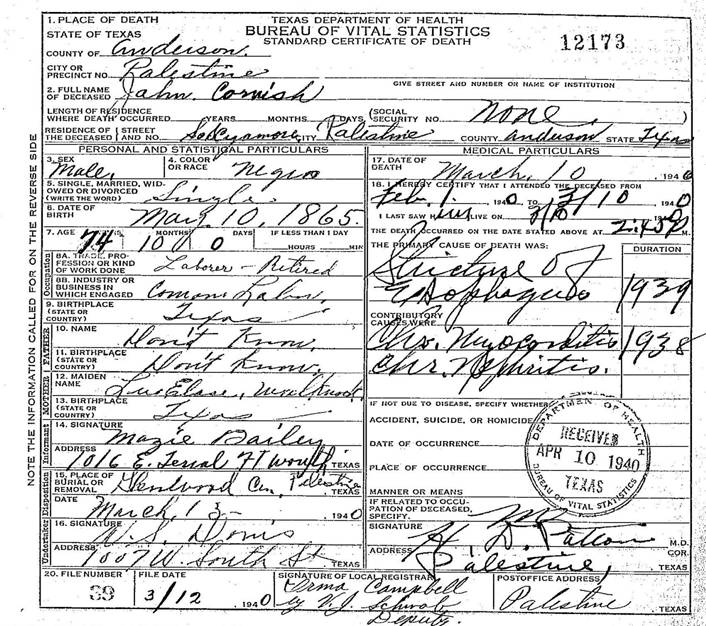 TEXAS DEPARTMENT OF HEALTH
BUREAU OF VITAL STATISTICS
STANDARD CERTIFICATE OF DEATH
12173
1. PLACE OF DEATH
STATE OF TEXAS
COUNTY OF Anderson.
CITY OR PRECINCT NO. Palestine
GIVE STREET AND NUMBER OR NAME OF INSTITUTION
2. FULL NAME OF DECEASED John Cornish
LENGTH OF RESIDENCE WHERE DEATH OCCURRED YEARS MONTHS DAYS (SOCIAL SECURITY NO. None )
RESIDENCE OF THE DECEASED STREET AND NO. So Sycamore CITY Palestine COUNTY Anderson STATE Texas
PERSONAL AND STATISTICAL PARTICULARS
3. SEX Male
4. COLOR OR RACE Negro
5. SINGLE, MARRIED, WIDOWED OR DIVORCED (WRITE THE WORD) Single
6. DATE OF BIRTH May 10, 1865.
7. AGE 74 YEARS 10 MONTHS 0 DAYS IF LESS THAN 1 DAY HOURS MIN
Occupation
8A. TRADE, PROFESSION OR KIND OF WORK DONE Laborer - Retired
8B. INDUSTRY OR BUSINESS IN WHICH ENGAGED Labor
9. BIRTHPLACE (STATE OR COUNTRY) Texas
FATHER
10. NAME Don't Know.
11. BIRTHPLACE (STATE OR COUNTRY) Don't Know.
MOTHER
12. MAIDEN NAME
13. BIRTHPLACE (STATE OR COUNTRY) Texas
Informant
14. SIGNATURE Mazie Bailey
ADDRESS 1016 E. Ft Worth, TEXAS
Disposition
15. PLACE OF BURIAL OR REMOVAL Cem. Palestine
DATE March 13 - 1940
Undertaker
16. SIGNATURE W. S. Davis
ADDRESS 1007 W. South St TEXAS
MEDICAL PARTICULARS
17. DATE OF DEATH March, 10 1940
18. I HEREBY CERTIFY THAT I ATTENDED THE DECEASED FROM
Feb. 1. 1940 TO 3/10 1940
I LAST SAW him ALIVE ON 3/10
THE DEATH OCCURRED ON THE DATE STATED ABOVE AT 2:45 P
THE PRIMARY CAUSE OF DEATH WAS: DURATION
Stricture of
Esophagus 1939
CONTRIBUTORY CAUSES WERE
Chr. Myocarditis 1938
Chr. Nephritis.
IF NOT DUE TO DISEASE, SPECIFY WHETHER
ACCIDENT, SUICIDE, OR HOMICIDE
DATE OF OCCURRENCE
PLACE OF OCCURRENCE
MANNER OR MEANS
DEPARTMENT OF HEALTH
RECEIVED
APR 10 1940
TEXAS
BUREAU OF VITAL STATISTICS
IF RELATED TO OCCUPATION OF DECEASED, SPECIFY.
SIGNATURE H. D. Patton M.D. COR.
ADDRESS Palestine, TEXAS
20. FILE NUMBER 39
FILE DATE 3/12 1940
SIGNATURE OF LOCAL REGISTRAR Irma Campbell
by V. J. Schwab
Deputy.
POSTOFFICE ADDRESS Palestine TEXAS
NOTE THE INFORMATION CALLED FOR ON THE REVERSE SIDE